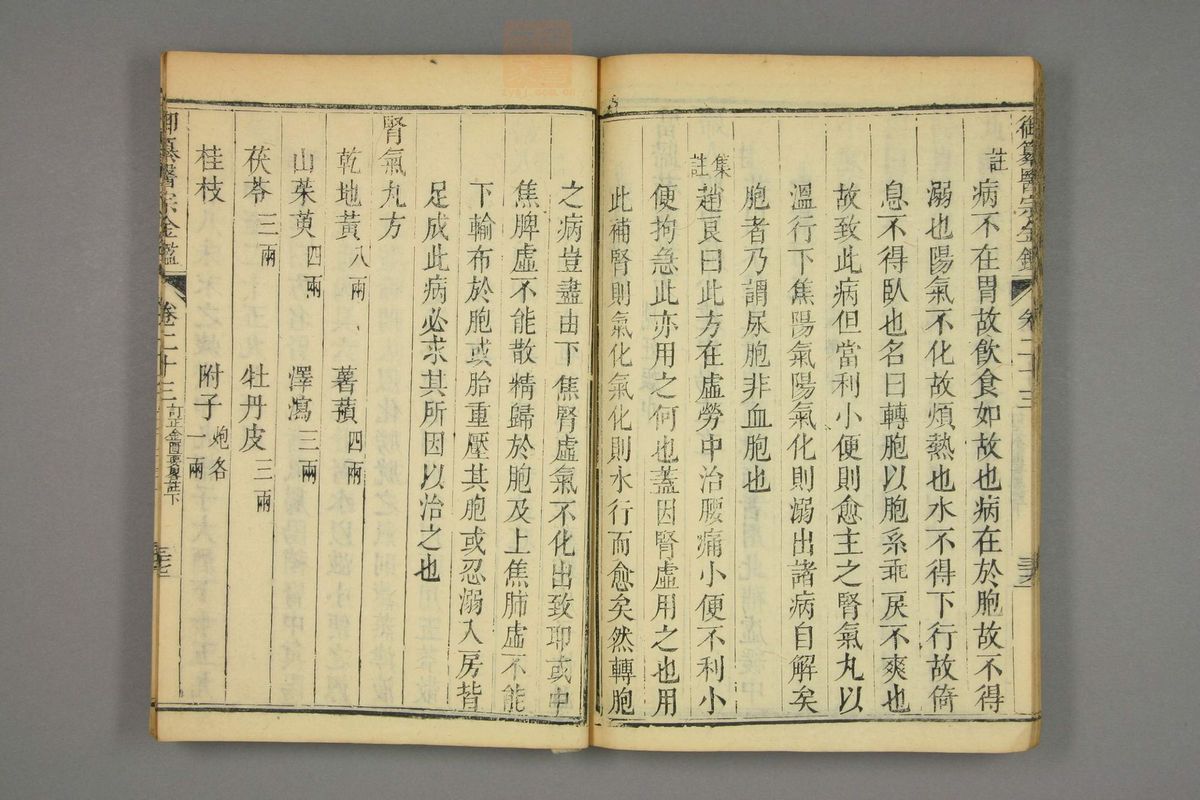 御纂醫宗金鑑 卷二十三
註
病不在胃故飲食如故也病在於胞故不得
溺也陽氣不化故煩熱也水不得下行故倚
息不得臥也名曰轉胞以胞系乖戾不爽也
故致此病但當利小便則愈主之腎氣丸以
溫行下焦陽氣陽氣化則溺出諸病自解矣
胞者乃謂尿胞非血胞也
集註
趙良曰此方在虛勞中治腰痛小便不利小
便拘急此亦用之何也蓋因腎虛用之也用
此補腎則氣化氣化則水行而愈矣然轉胞
之病豈盡由下焦腎虛氣不化出致耶或中
焦脾虛不能散精歸於胞及上焦肺虛不能
下輸布於胞或胎重壓其胞或忍溺入房皆
足成此病必求其所因以治之也
腎氣丸方
乾地黃八兩 薯蕷四兩
山茱萸四兩 澤瀉三兩
茯苓三兩 牡丹皮三兩
桂枝 附子炮各一兩
御纂醫宗金鑑 卷二十三 訂正金匱要畧註下